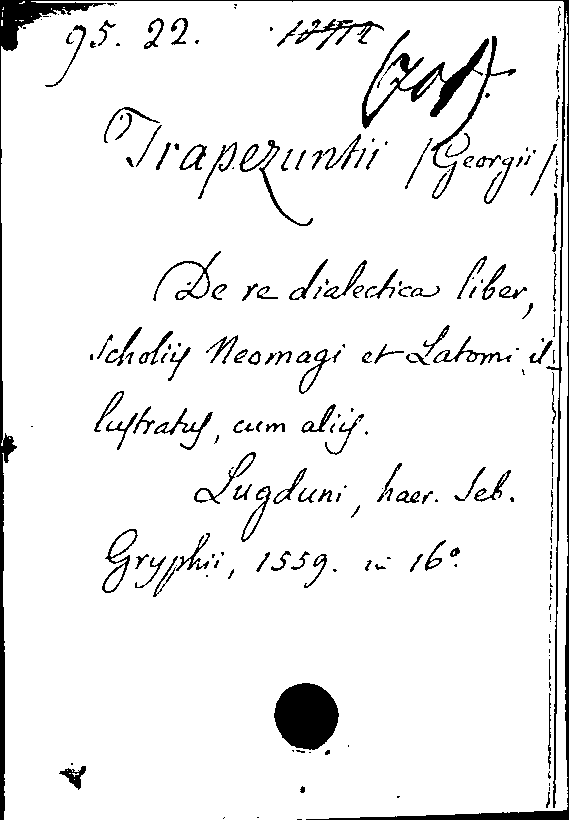 95. 22.
Trapezuntii /Georgii/
De re dialectica liber,
scholiis Neomagi et Latomi il-
lustratus, cum aliis.
Lugduni, haer. Seb.
Gryphii, 1559. in 16°.